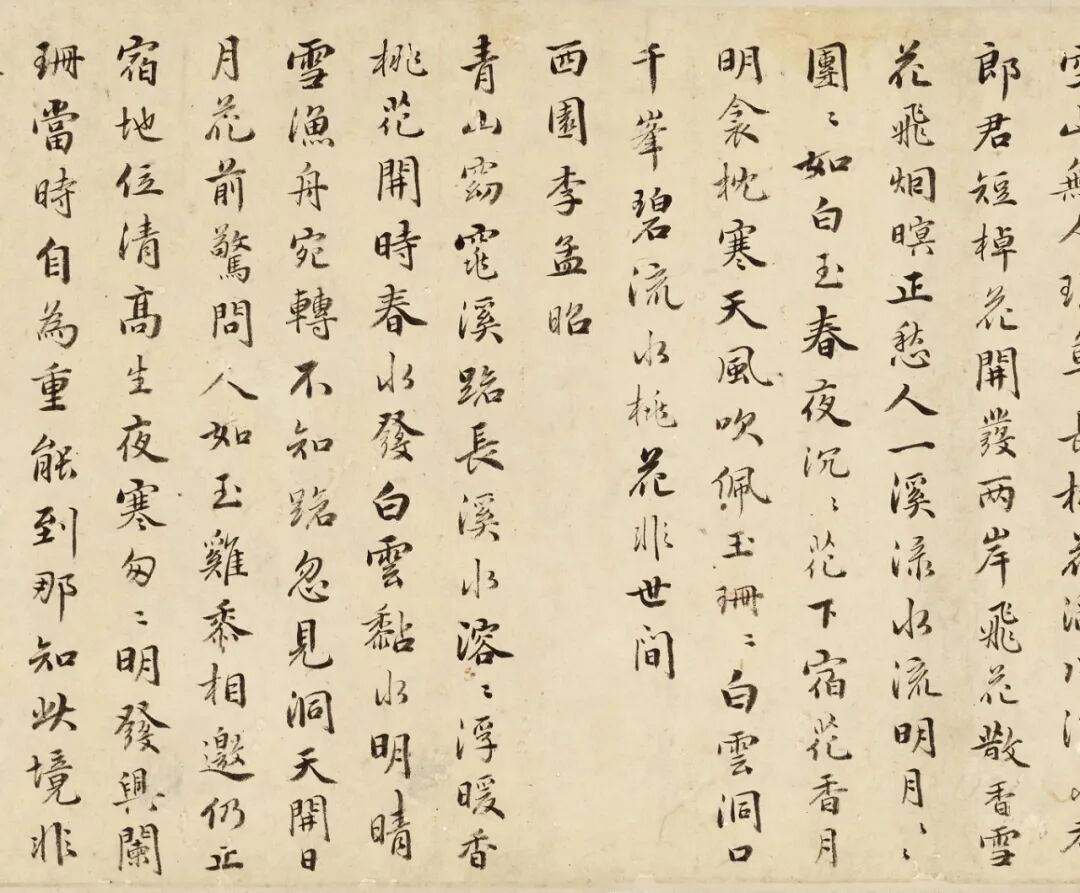 雪山無人
郎君短棹花開發两岸飛花散香雪
花飛烟暝正愁人一溪渌水流明月〻
團〻如白玉春夜沉〻花下宿花香月
明衾枕寒天風吹佩玉珊〻白雲洞口
千峯碧流水桃花非世间
西園李孟昭
青山窈窕溪路長溪水溶〻浮暖香
桃花開時春水發白雲黏水明晴
雪漁舟宛轉不知路忽見洞天開日
月花前驚問人如玉雞黍相邀仍正
宿地位清髙生夜寒匆〻明發興闌
珊當時自為重能到那知此境非